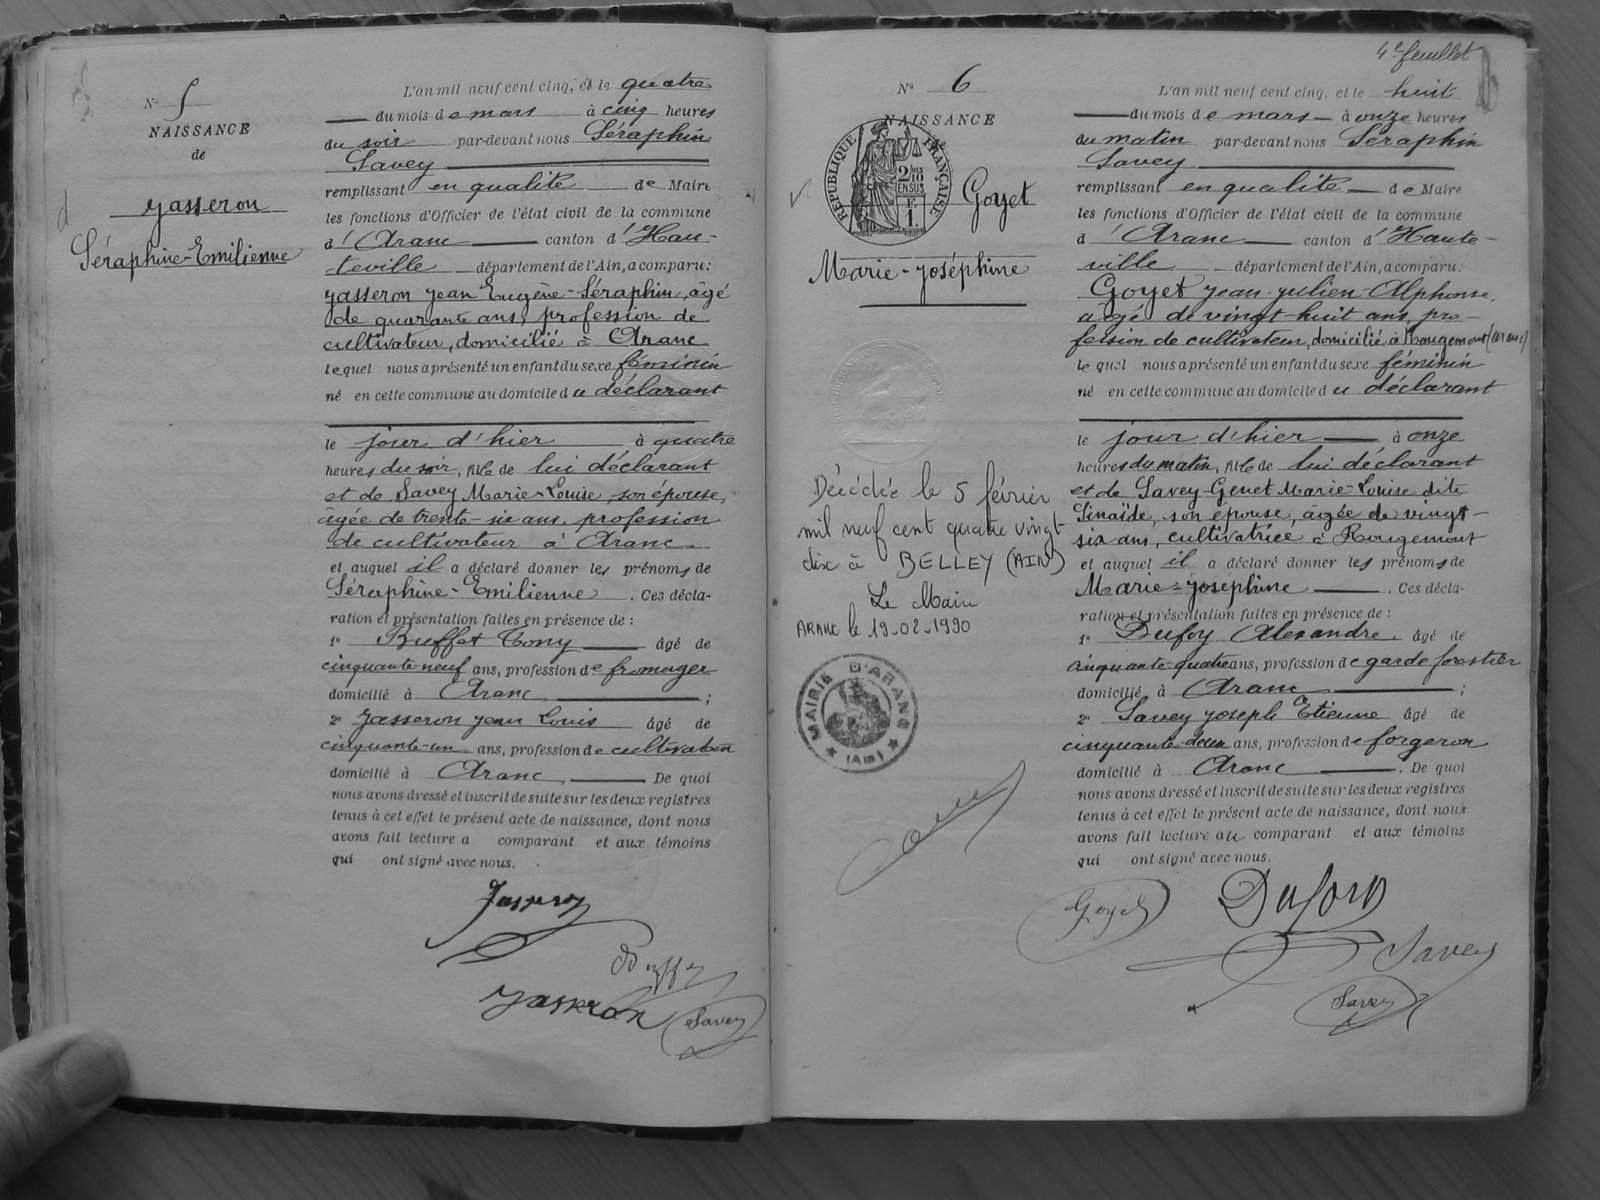 N° 5
NAISSANCE
de
Jasseron
Séraphine-Emilienne
L'an mil neuf cent cinq, et le quatre
du mois de mars à cinq heures
du soir par-devant nous Séraphin
Savey
remplissant en qualité de Maire
les fonctions d'Officier de l'état civil de la commune
d'Aranc canton d'Hau-
teville département de l'Ain, a comparu:
Jasseron Jean Eugène-Séraphin, âgé
de quarante ans, profession de
cultivateur, domicilié à Aranc
lequel nous a présenté un enfant du sexe féminin
né en cette commune au domicile du déclarant
le jour d'hier à quatre
heures du soir, fille de lui déclarant
et de Savey Marie-Louise, son épouse,
âgée de trente-six ans, profession
de cultivateur à Aranc
et auquel il a déclaré donner les prénoms de
Séraphine-Emilienne . Ces décla-
ration et présentation faites en présence de :
1° Buffet Tony âgé de
cinquante-neuf ans, profession de fromager
domicilié à Aranc ;
2° Jasseron Jean Louis âgé de
cinquante-un ans, profession de cultivateur
domicilié à Aranc. De quoi
nous avons dressé et inscrit de suite sur les deux registres
tenus à cet effet le présent acte de naissance, dont nous
avons fait lecture a comparant et aux témoins
qui ont signé avec nous.
Jasseron
Buffet
Jasseron
Savey
4e feuillet
N° 6
NAISSANCE
RÉPUBLIQUE FRANÇAISE
2/10
EN SUS
F.
1.
Goyet
Marie-Joséphine
Décédée le 5 février
mil neuf cent quatre vingt
dix à BELLEY (AIN)
Le Maire
ARANC le 19-02-1990
MAIRIE D'ARANC
(AIN)
L'an mil neuf cent cinq, et le huit
du mois de mars à onze heures
du matin par-devant nous Séraphin
Savey
remplissant en qualité de Maire
les fonctions d'Officier de l'état civil de la commune
d'Aranc canton d'Haute-
ville département de l'Ain, a comparu:
Goyet Jean-Julien-Alphonse,
âgé de vingt-huit ans, pro-
fession de cultivateur, domicilié à Rougemont (Aranc)
lequel nous a présenté un enfant du sexe féminin
né en cette commune au domicile du déclarant
le jour d'hier à onze
heures du matin, fille de lui déclarant
et de Savey-Genet Marie-Louise dite
Sinaïde, son épouse, âgée de vingt-
six ans, cultivatrice à Rougemont
et auquel il a déclaré donner les prénoms de
Marie-Joséphine . Ces décla-
ration et présentation faites en présence de :
1° Dufoy Alexandre âgé de
cinquante-quatre ans, profession de garde forestier
domicilié à Aranc ;
2° Savey Joseph Etienne âgé de
cinquante-deux ans, profession de forgeron
domicilié à Aranc . De quoi
nous avons dressé et inscrit de suite sur les deux registres
tenus à cet effet le présent acte de naissance, dont nous
avons fait lecture au comparant et aux témoins
qui ont signé avec nous.
Goyet
Savey
Savey